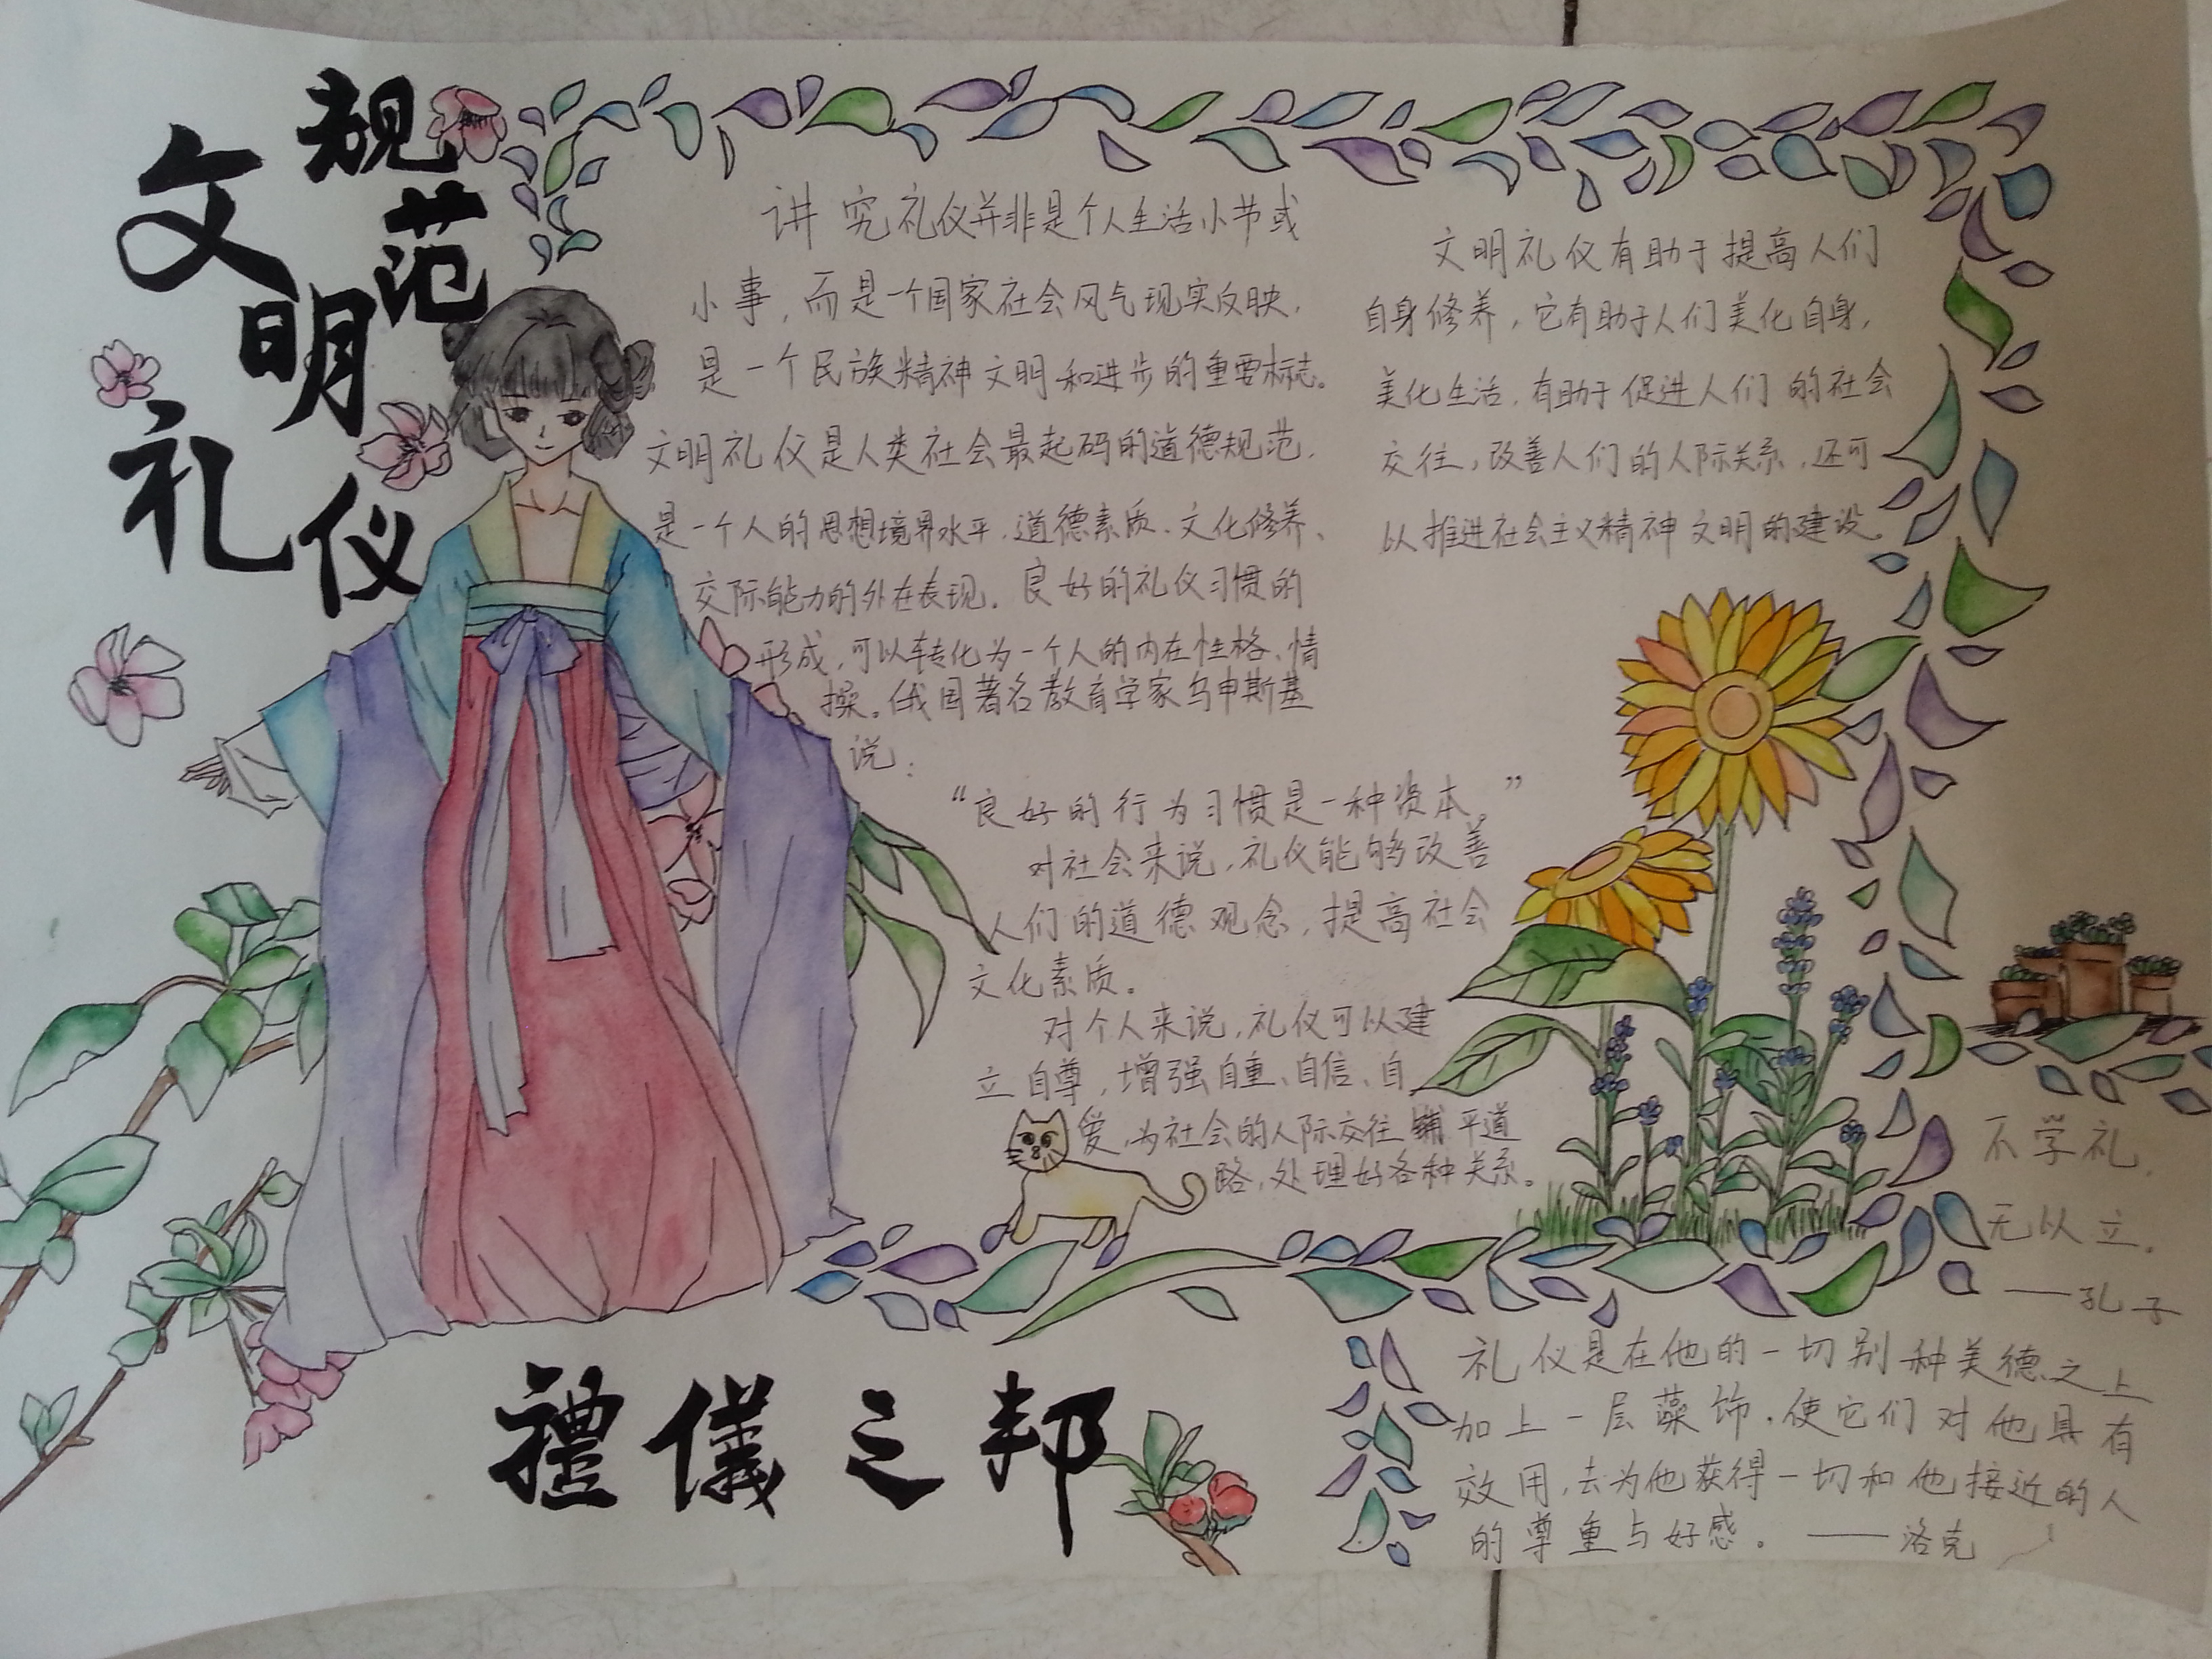 规范
文明
礼仪
讲究礼仪并非是个人生活小节或
小事，而是一个国家社会风气现实反映，
是一个民族精神文明和进步的重要标志。
文明礼仪是人类社会最起码的道德规范，
是一个人的思想境界水平、道德素质、文化修养、
交际能力的外在表现。良好的礼仪习惯的
形成，可以转化为一个人的内在性格、情
操。俄国著名教育学家乌申斯基
说：
“良好的行为习惯是一种资本。”
对社会来说，礼仪能够改善
人们的道德观念，提高社会
文化素质。
对个人来说，礼仪可以建
立自尊，增强自重、自信、自
爱，为社会的人际交往铺平道
略，处理好各种关系。
文明礼仪有助于提高人们
自身修养，它有助于人们美化自身，
美化生活，有助于促进人们的社会
交往，改善人们的人际关系，还可
以推进社会主义精神文明的建设。
不学礼，
无以立。
——孔子
礼仪是在他的一切别种美德之上
加上一层藻饰，使它们对他具有
效用，去为他获得一切和他接近的人
的尊重与好感。——洛克
禮儀之邦